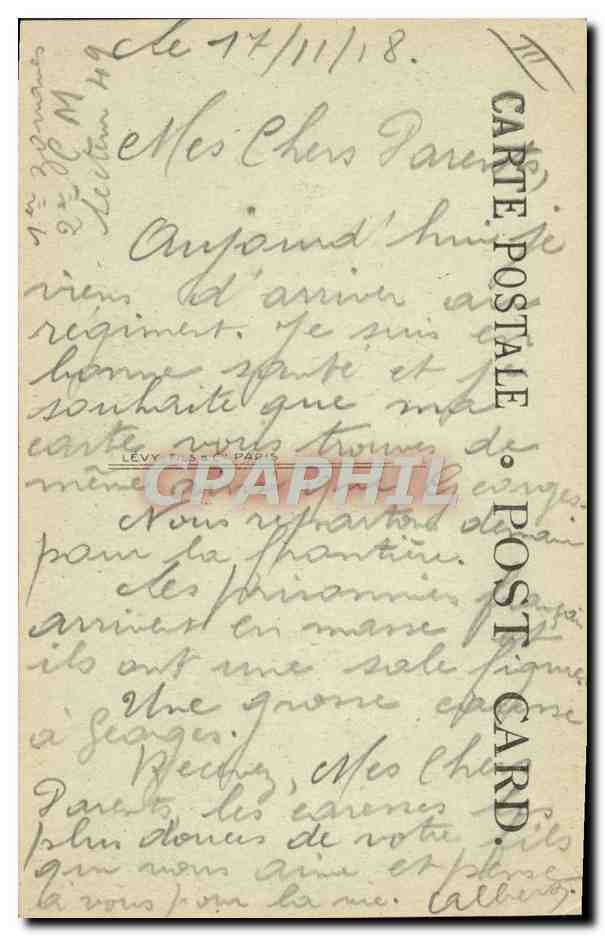 III
1er zouaves
2e C M
Secteur 49
le 17/11/18.
Mes Chers Parents,
Aujourd'hui je
viens d'arriver au
régiment. Je suis en
bonne santé et je
souhaite que ma
carte vous trouves de
même ainsi que Georges.
Nous repartons demain
pour la frontière.
Les prisonniers français
arrivent en masse et
ils ont une sale figure.
Une grosse caresse
à Georges.
Recevez, Mes Chers
Parents les caresses les
plus douces de votre fils
qui vous aime et pense
à vous pour la vie. Albert
LÉVY FILS & Cie PARIS
CPAPHIL
CARTE POSTALE • POST CARD.